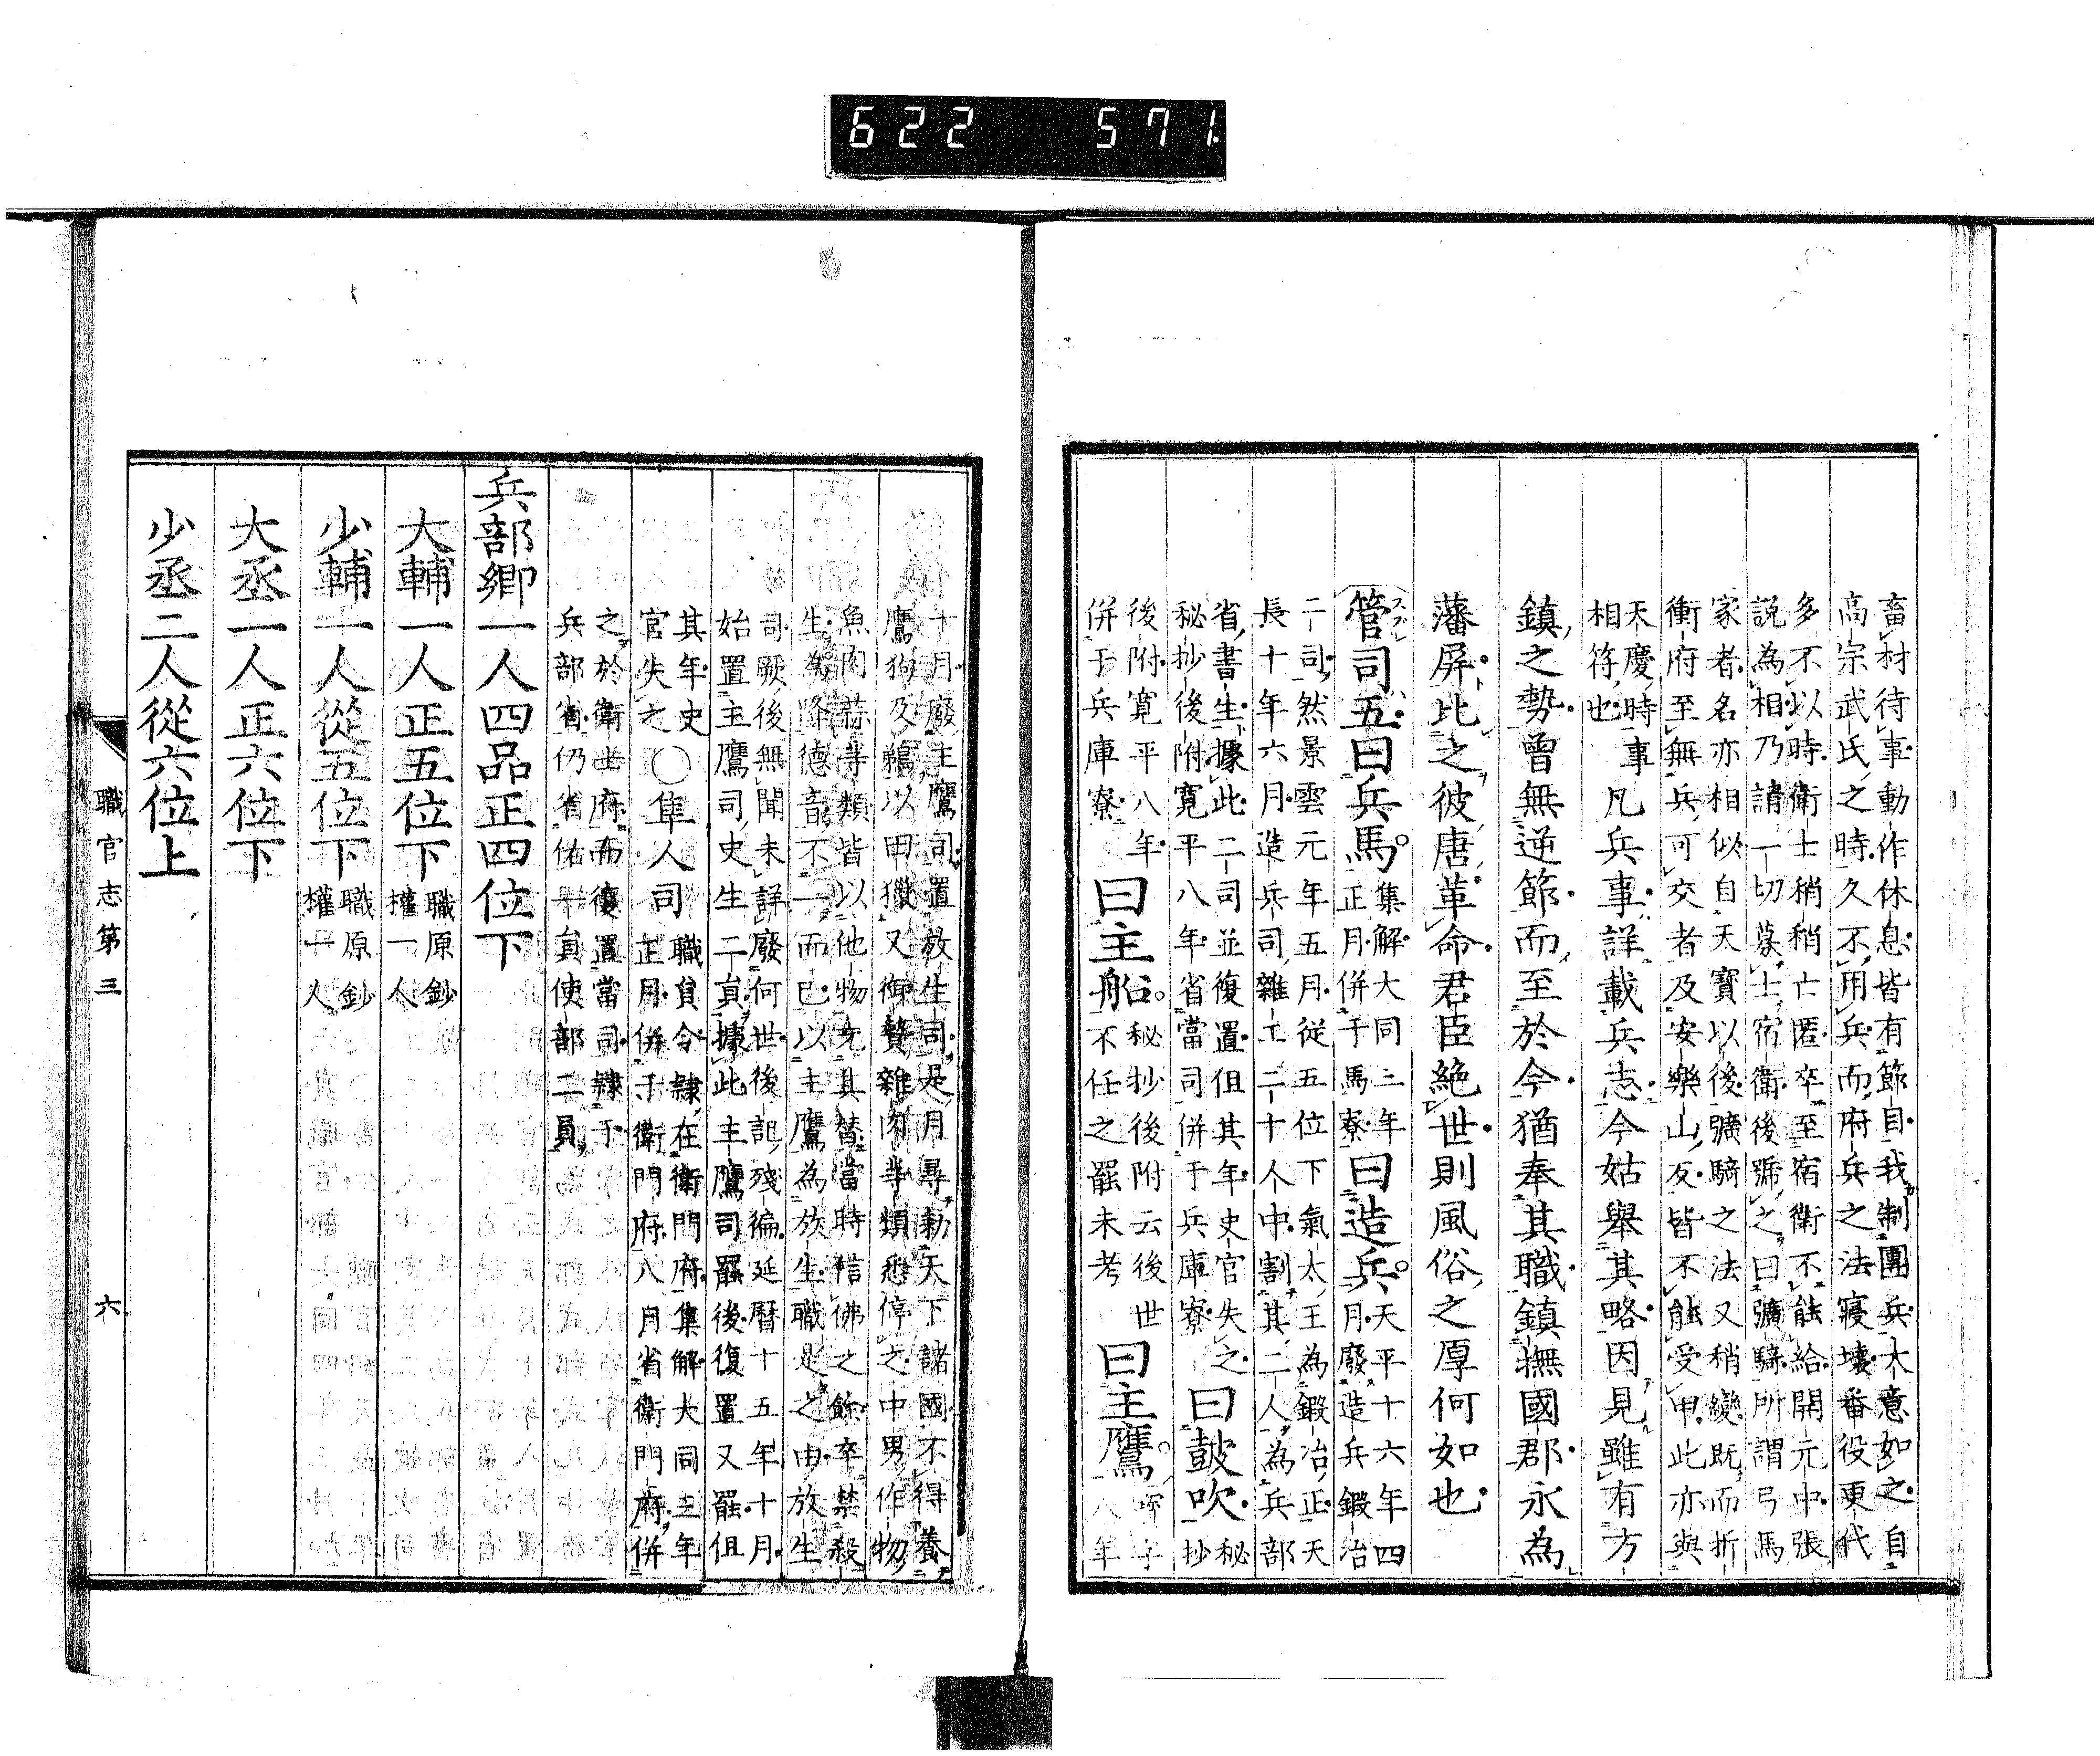 622 571
畜材待事動作休息皆有節目我制團兵大意如之自
高宗武氏之時久不用兵而府兵之法寢壞番役更代
多不以時衛士稍稍亡匿卒至宿衛不能給開元中張
説為相乃請一切募士宿衛後號之曰彍騎所謂弓馬
家者名亦相似自天寶以後彍騎之法又稍變既而折
衝府至無兵可交者及安樂山反皆不能受甲此亦與
天慶時事凡兵事詳載兵志今姑舉其略因見雖有方
相符也
鎮之勢曾無逆節而至於今猶奉其職鎮撫國郡永為
藩屏比之彼唐革命君臣絶世則風俗之厚何如也
管司五曰兵馬集解大同三年
正月併于馬寮曰造兵天平十六年四
月廢造兵鍛冶
二司然景雲元年五月従五位下氣太王為鍛冶正天
長十年六月造兵司雜工二十人中割其二人為兵部
省書生據此二司並復置但其年史官失之曰鼓吹秘
抄
秘抄後附寛平八年省當司併于兵庫寮
後附寛平八年
併于兵庫寮曰主船秘抄後附云後世
不任之罷未考曰主鷹
八年
十月廢主鷹司置放生司是月尋勅天下諸國不得養
鷹狗及鵜以田獵又御贄雜肉等類悉停之中男作物
魚肉蒜等類皆以他物充其替當時信佛之餘卒禁殺
生為降德音不一而已以主鷹為放生職是之由放生
司厥後無聞未詳廢何世後記殘徧延暦十五年十月
始置主鷹司史生二員據此主鷹司罷後復置又罷但
其年史
官失之〇隼人司職員令隷在衛門府集解大同三年
正月併于衛門府八月省衛門府併
之於衛士府而復置當司隷于
兵部省仍省佑一員使部二員
兵部卿一人四品正四位下
大輔一人正五位下職原鈔
權一人
少輔一人從五位下職原鈔
權一人
大丞一人正六位下
少丞二人從六位上
職官志第三
六